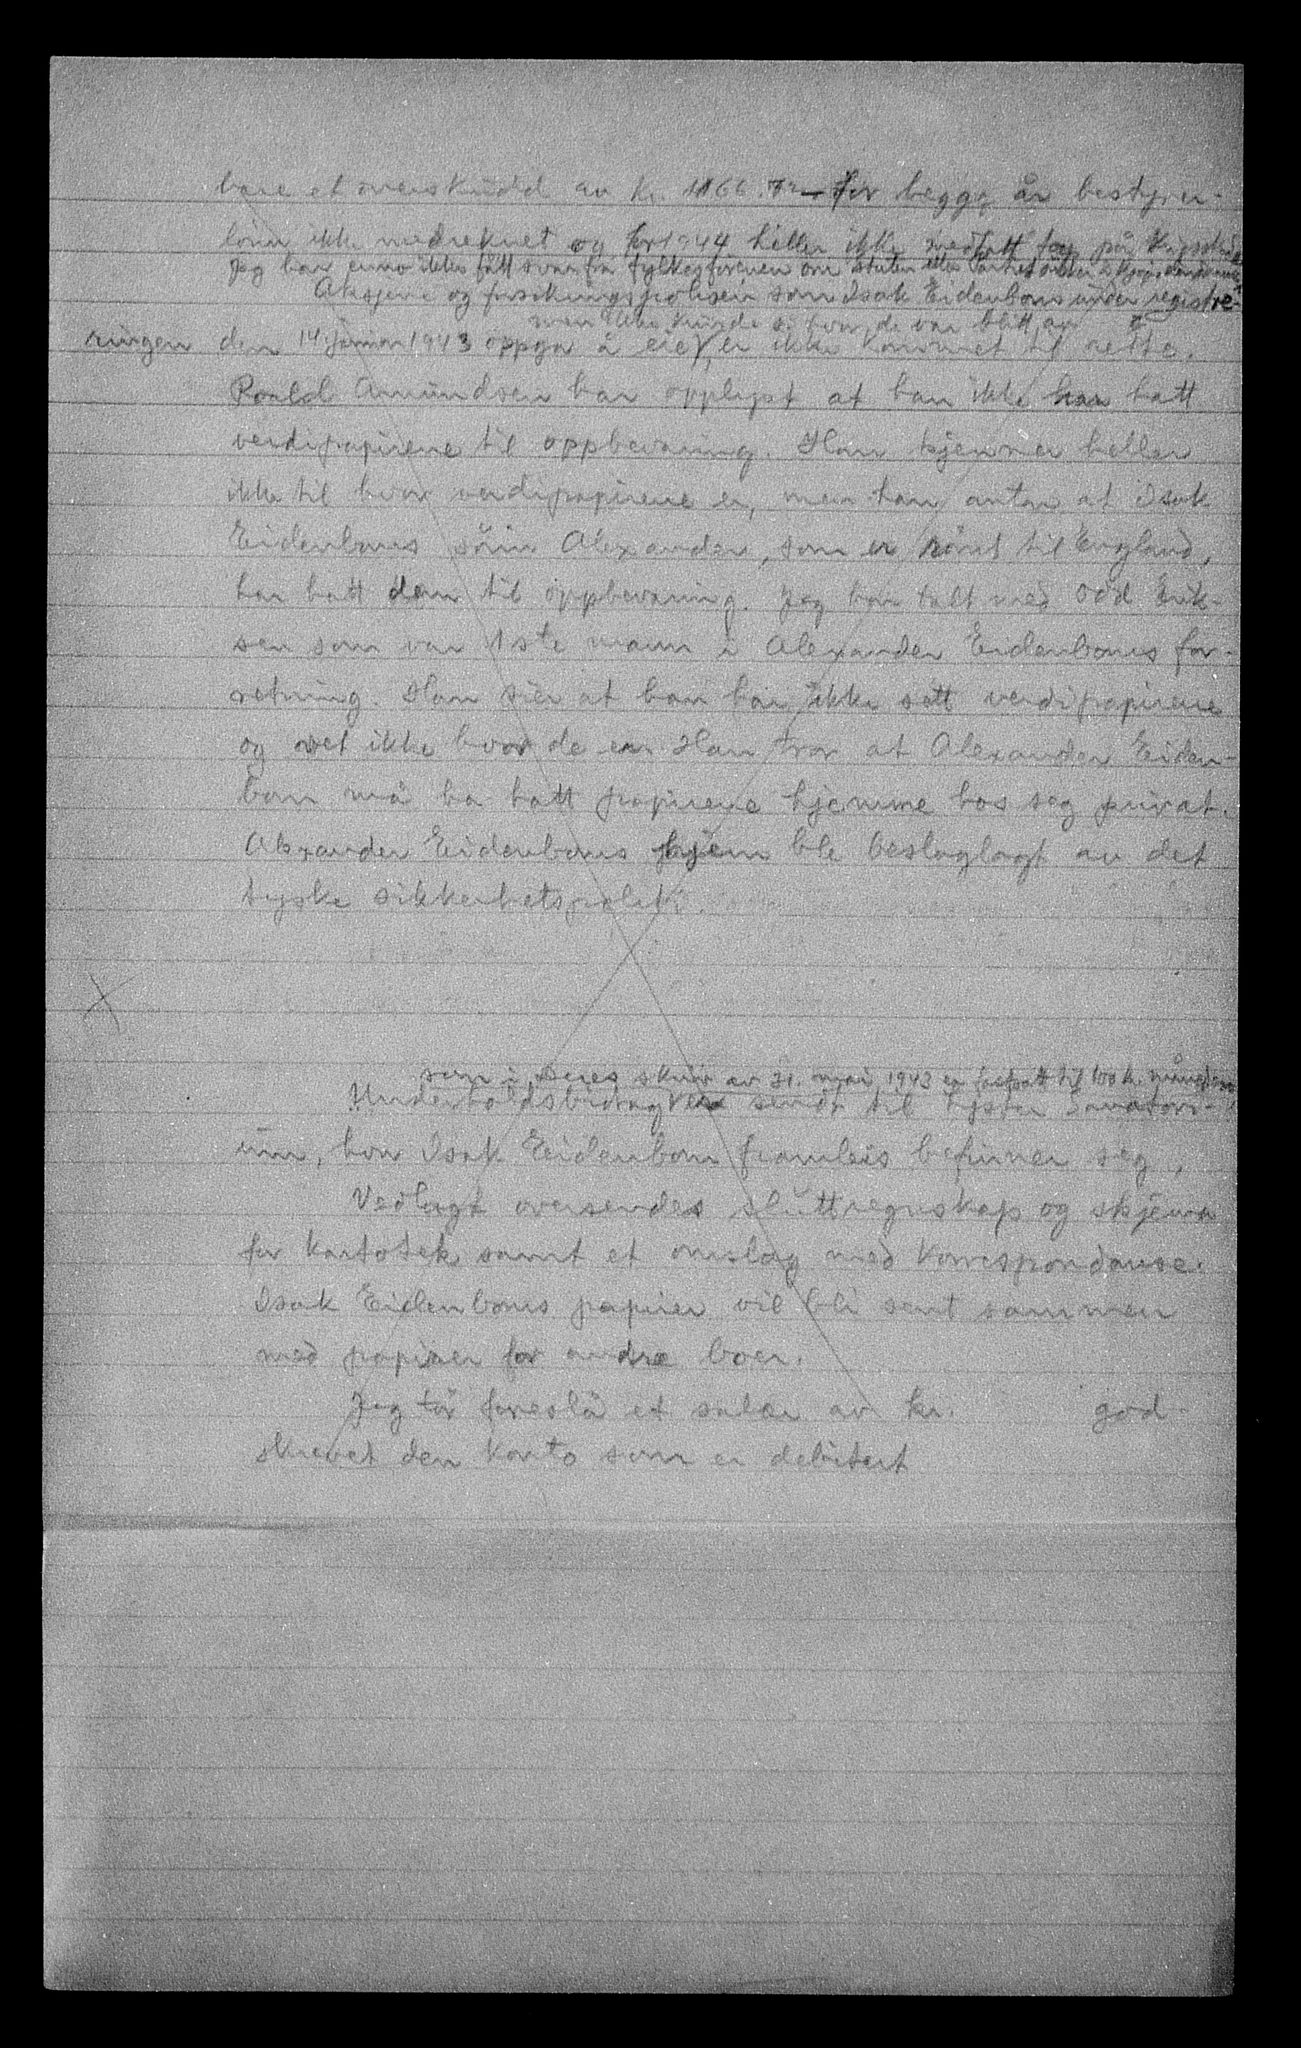 bare et overskudd av kr. 1166.72 — for begge år bestyrer-
lönn ikke medreknet og for 1944 heller ikke medtatt tap på
Jeg har enno ikke fått svar fra fylkesföreren om Staten eller
Aksjene og forsikringspolisen som Isak Eidenbom under registre-
men ikke kunde si hvor de var blitt av
ringen den 14. januar 1943 oppga å eie, er ikke kommet til rette.
Roald Amundsen har opplyst at han ikke har hatt
verdipapirene til oppbevaring. Han kjenner heller
ikke til hvor verdipapirene er, men han antar at Isak
Eidenboms sönn Alexander, som er römt til England,
har hatt dem til oppbevaring. Jeg har talt med Odd Erik-
sen som var 1ste mann i Alexander Eidenboms for-
retning. Han sier at han har ikke sett verdipapirene
og vet ikke hvor de er. Han tror at Alexander Eiden-
bom må ha hatt papirene hjemme hos seg privat.
Alexander Eidenboms hjem ble beslaglagt av det
tyske sikkerhetspoliti.
som i Deres skriv av 31. mai 1943 er fastsatt til 100 kr. måneden
Underholdsbidraget er sendt til Lyster Sanatori-
um, hvor Isak Eidenbom framleis befinner seg,
Vedlagt oversendes sluttregnskap og skjema
for kartotek samt et omslag med korrespondanse.
Isak Eidenboms papirer vil bli sent sammen
med papirer for andre boer.
Jeg tör foreslå et salær av kr. god-
skrevet den konto som er debitert